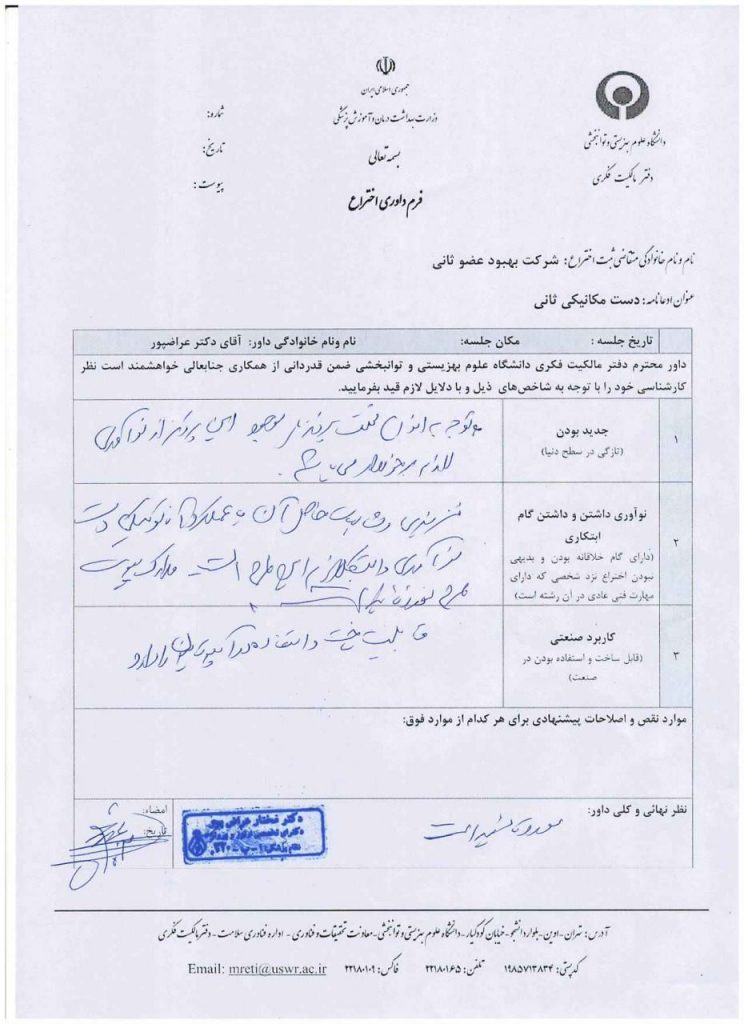 جمهوری اسلامی ایران
وزارت بهداشت درمان و آموزش پزشکی
بسمه تعالی
فرم داوری اختراع
دانشگاه علوم بهزیستی و توانبخشی
دفتر مالکیت فکری
شماره:
تاریخ:
پیوست:
نام و نام خانوادگی متقاضی ثبت اختراع: شرکت بهبود عضو ثانی
عنوان ادعانامه: دست مکانیکی ثانی
تاریخ جلسه : مکان جلسه: نام ونام خانوادگی داور: آقای دکتر عراضپور
داور محترم دفتر مالکیت فکری دانشگاه علوم بهزیستی و توانبخشی ضمن قدردانی از همکاری جنابعالی خواهشمند است نظر
کارشناسی خود را با توجه به شاخص‌های ذیل و با دلایل لازم قید بفرمایید.
۱
جدید بودن
(تازگی در سطح دنیا)
موجود این پروتز از نوآوری
لازم برخوردار می باشد.
۲
نوآوری داشتن و داشتن گام
ابتکاری
(دارای گام خلاقانه بودن و بدیهی
نبودن اختراع نزد شخصی که دارای
مهارت فنی عادی در آن رشته است)
آن به عملکرد دست
۳
کاربرد صنعتی
(قابل ساخت و استفاده بودن در
صنعت)
قابلیت ساخت و استفاده را دارد
موارد نقص و اصلاحات پیشنهادی برای هر کدام از موارد فوق:
نظر نهائی و کلی داور:
مورد تایید است
دکتر مختار عراض پور
امضاء:
تاریخ:
آدرس: تهران-اوین-بلوار دانشجو-خیابان کودکیار-دانشگاه علوم بهزیستی و توانبخشی-معاونت تحقیقات و فناوری - اداره فناوری سلامت - دفتر مالکیت فکری
کد پستی: ۱۹۸۵۷۱۳۸۳۴ تلفن: ۲۲۱۸۰۱۶۵ فاکس: ۲۲۱۸۰۱۰۹ Email: mreti@uswr.ac.ir